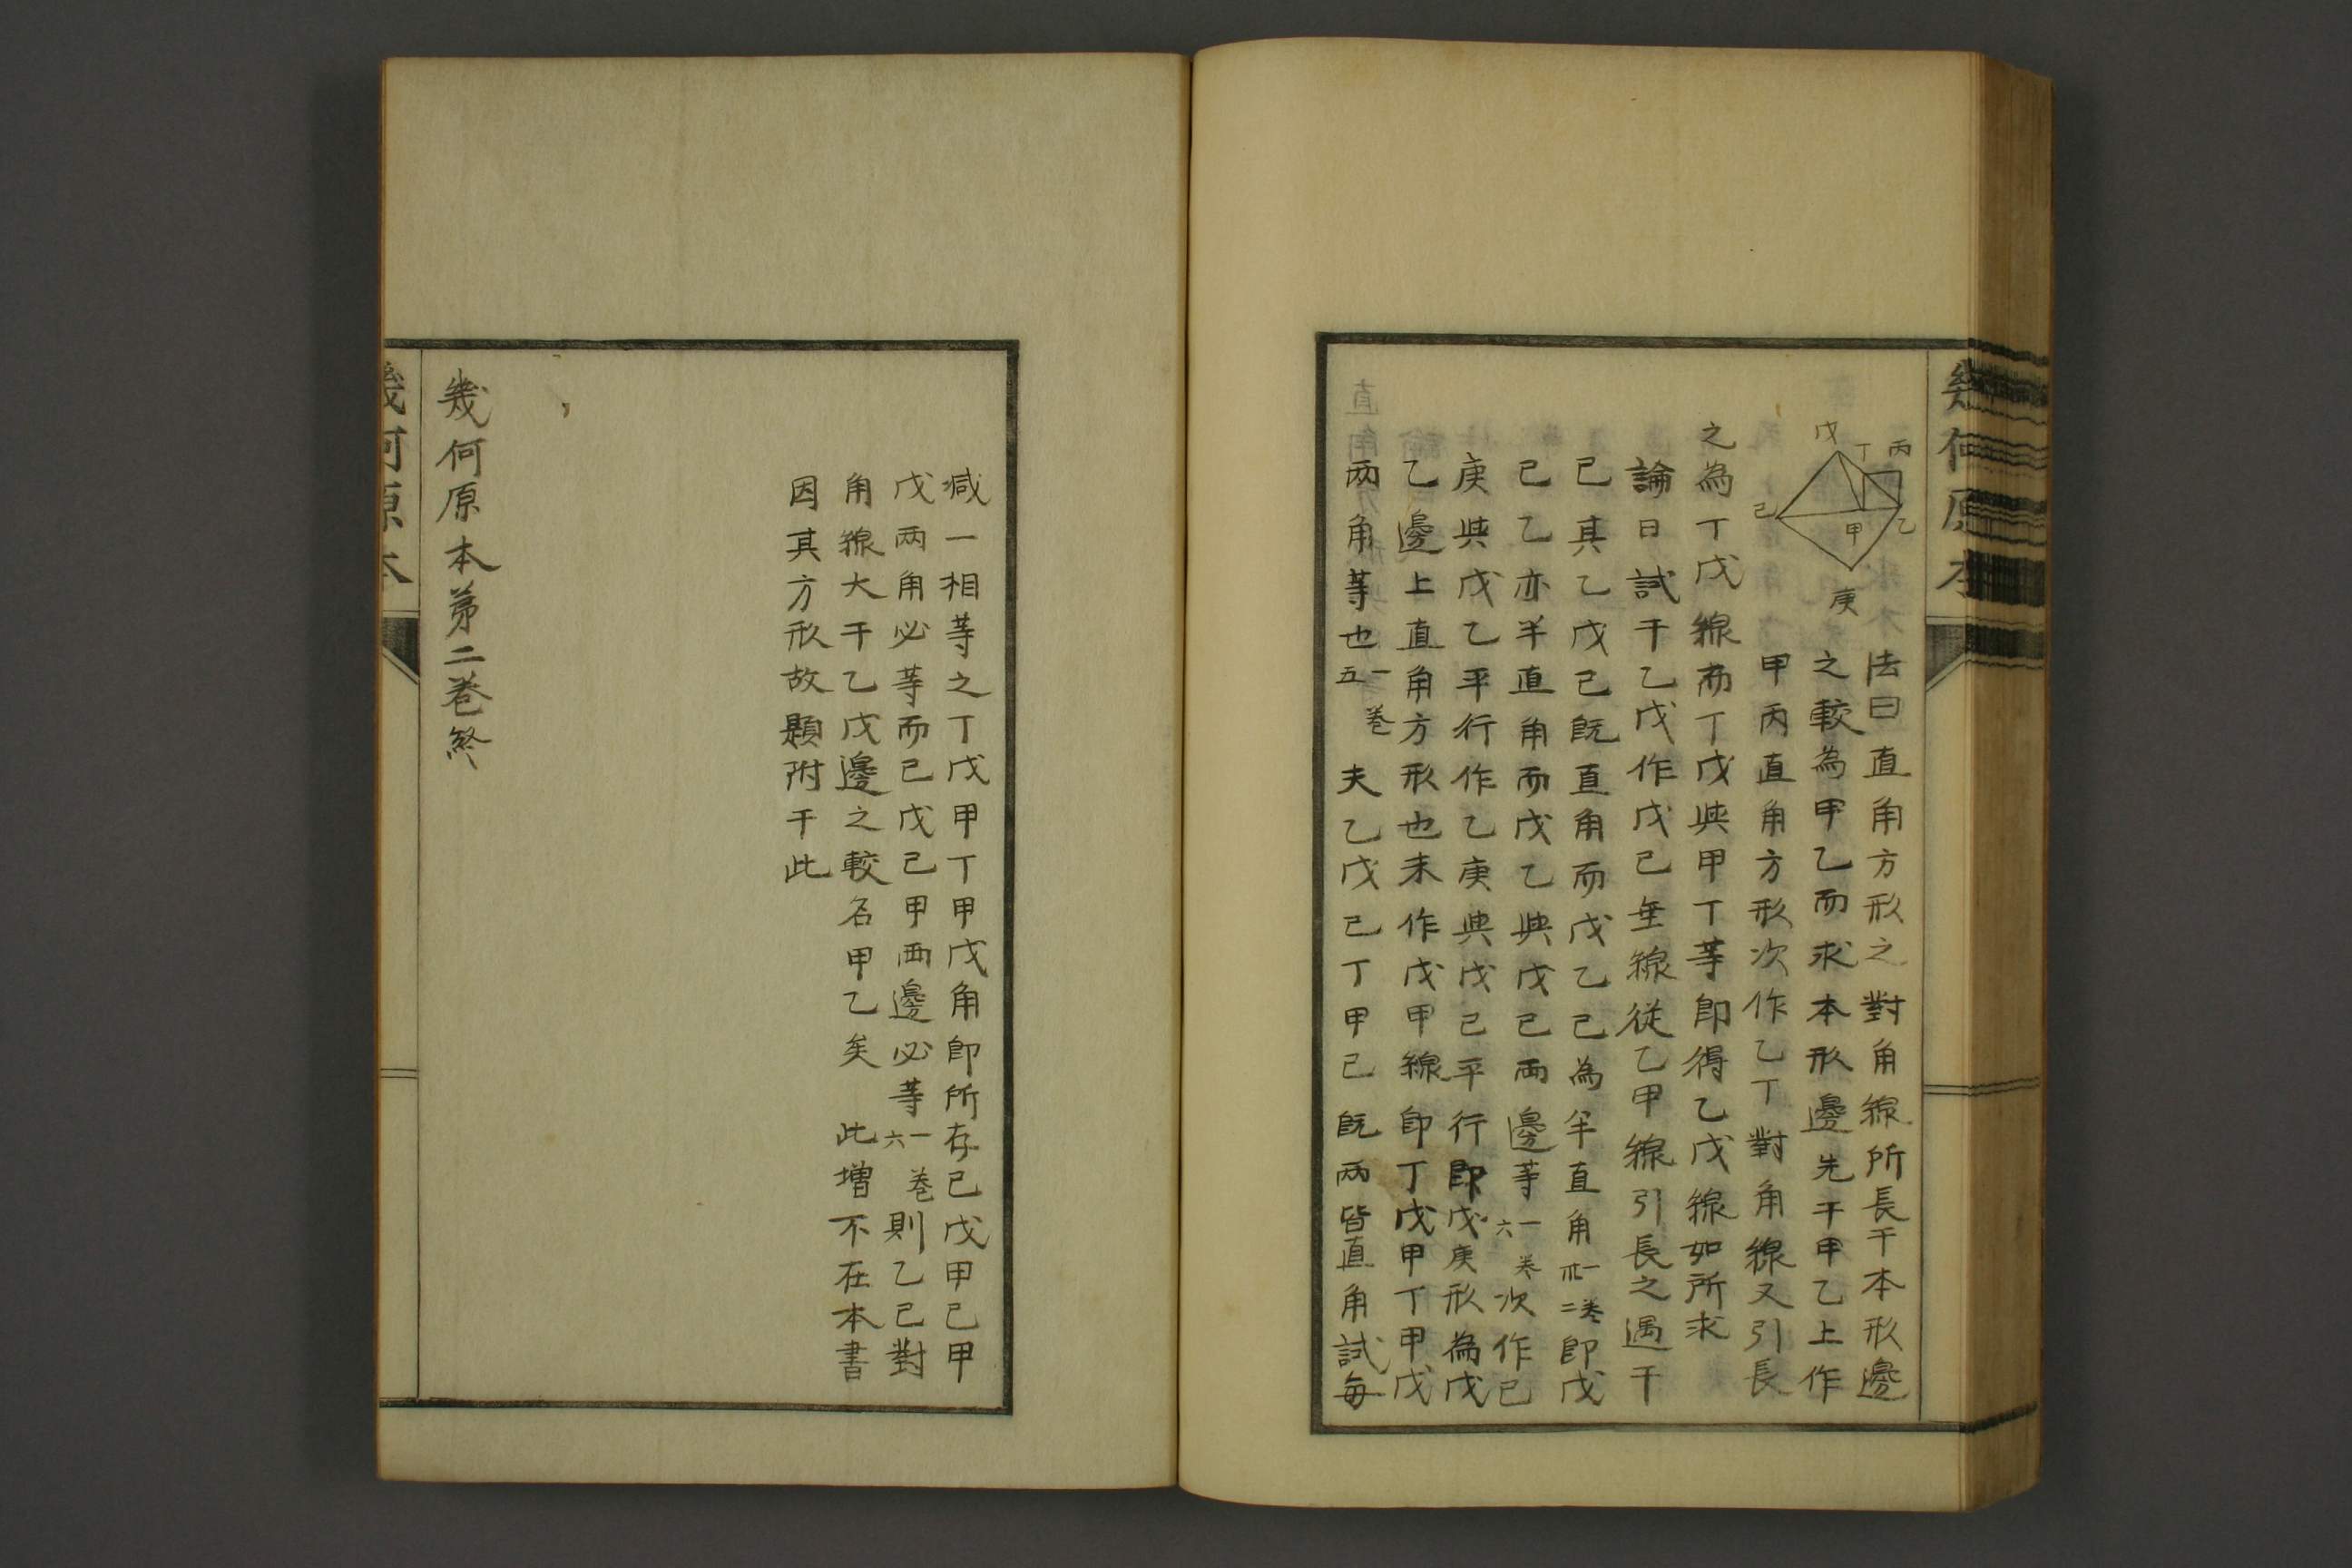 幾何原本
戊
丁
丙
己
甲
乙
庚
法曰直角方形之對角線所長于本形邊
之較為甲乙而求本形邊先于甲乙上作
甲丙直角方形次作乙丁對角線又引長
之為丁戊線而丁戊與甲丁等即得乙戊線如所求
論曰試于乙戊作戊己垂線從乙甲線引長之遇于
己其乙戊己既直角而戊乙己為半直角一卷卅二即戊
己乙亦半直角而戊乙與戊己兩邊等一卷六次作己
庚與戊乙平行作乙庚與戊己平行即戊庚形為戊
乙邊上直角方形也末作戊甲線即丁戊甲丁甲戊
兩角等也一卷五夫乙戊己丁甲己既兩皆直角試每
減一相等之丁戊甲丁甲戊角即所存己戊甲己甲
戊兩角必等而己戊己甲兩邊必等一卷六則乙己對
角線大于乙戊邊之較名甲乙矣 此增不在本書
因其方形故題附于此
幾何原本第二卷終
幾何原本